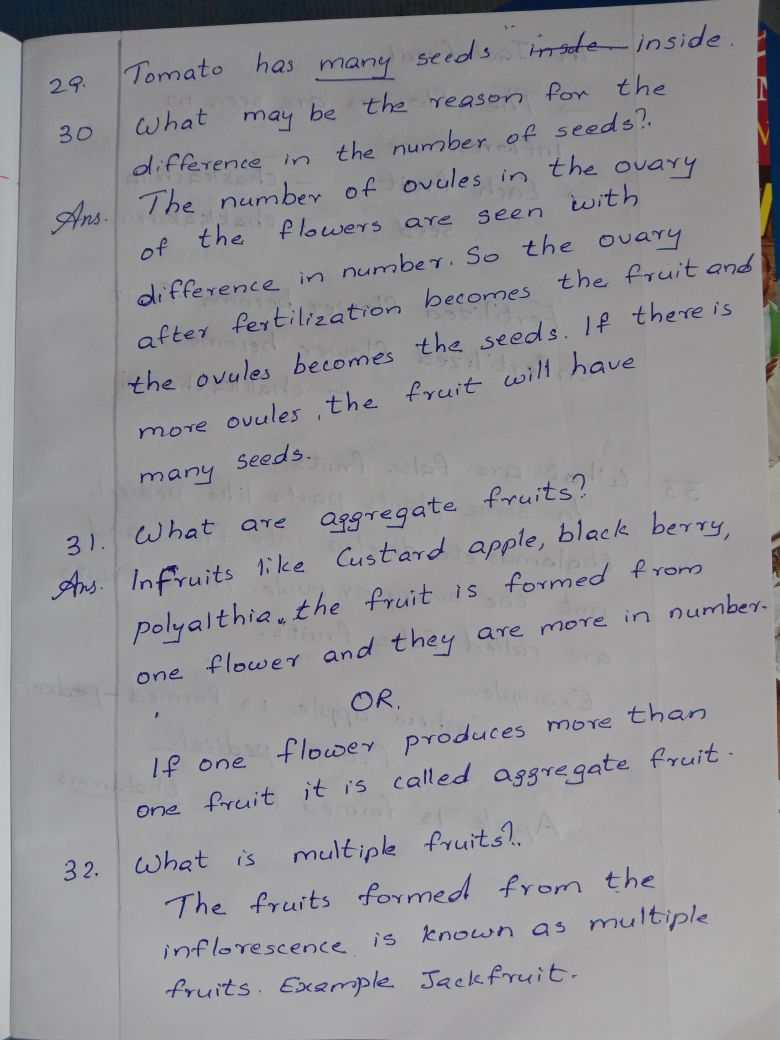 29. Tomato has many seeds insde inside.
30 What may be the reason for the
difference in the number of seeds?
Ans. The number of ovules in the ovary
of the flowers are seen with
difference in number. So the ovary
after fertilization becomes the fruit and
the ovules becomes the seeds. If there is
more ovules, the fruit will have
many seeds.
31. What are aggregate fruits?
Ans. Infruits like Custard apple, black berry,
polyalthia, the fruit is formed from
one flower and they are more in number.
OR.
If one flower produces more than
one fruit it is called aggregate fruit.
32. What is multiple fruits?
The fruits formed from the
inflorescence is known as multiple
fruits. Example Jackfruit.